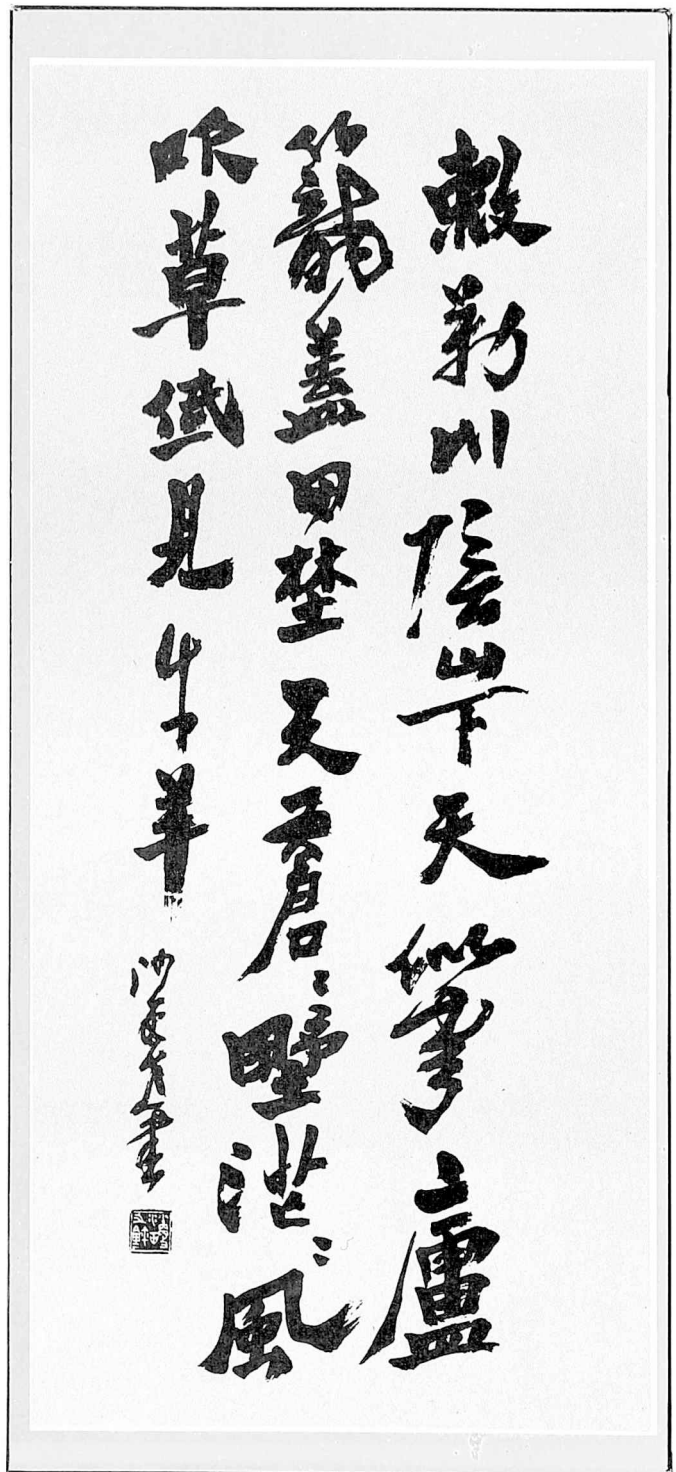 敕勒川陰山下天似穹廬
籠蓋四埜天蒼〻野茫〻風
吹草低見牛羊 沙孟海書